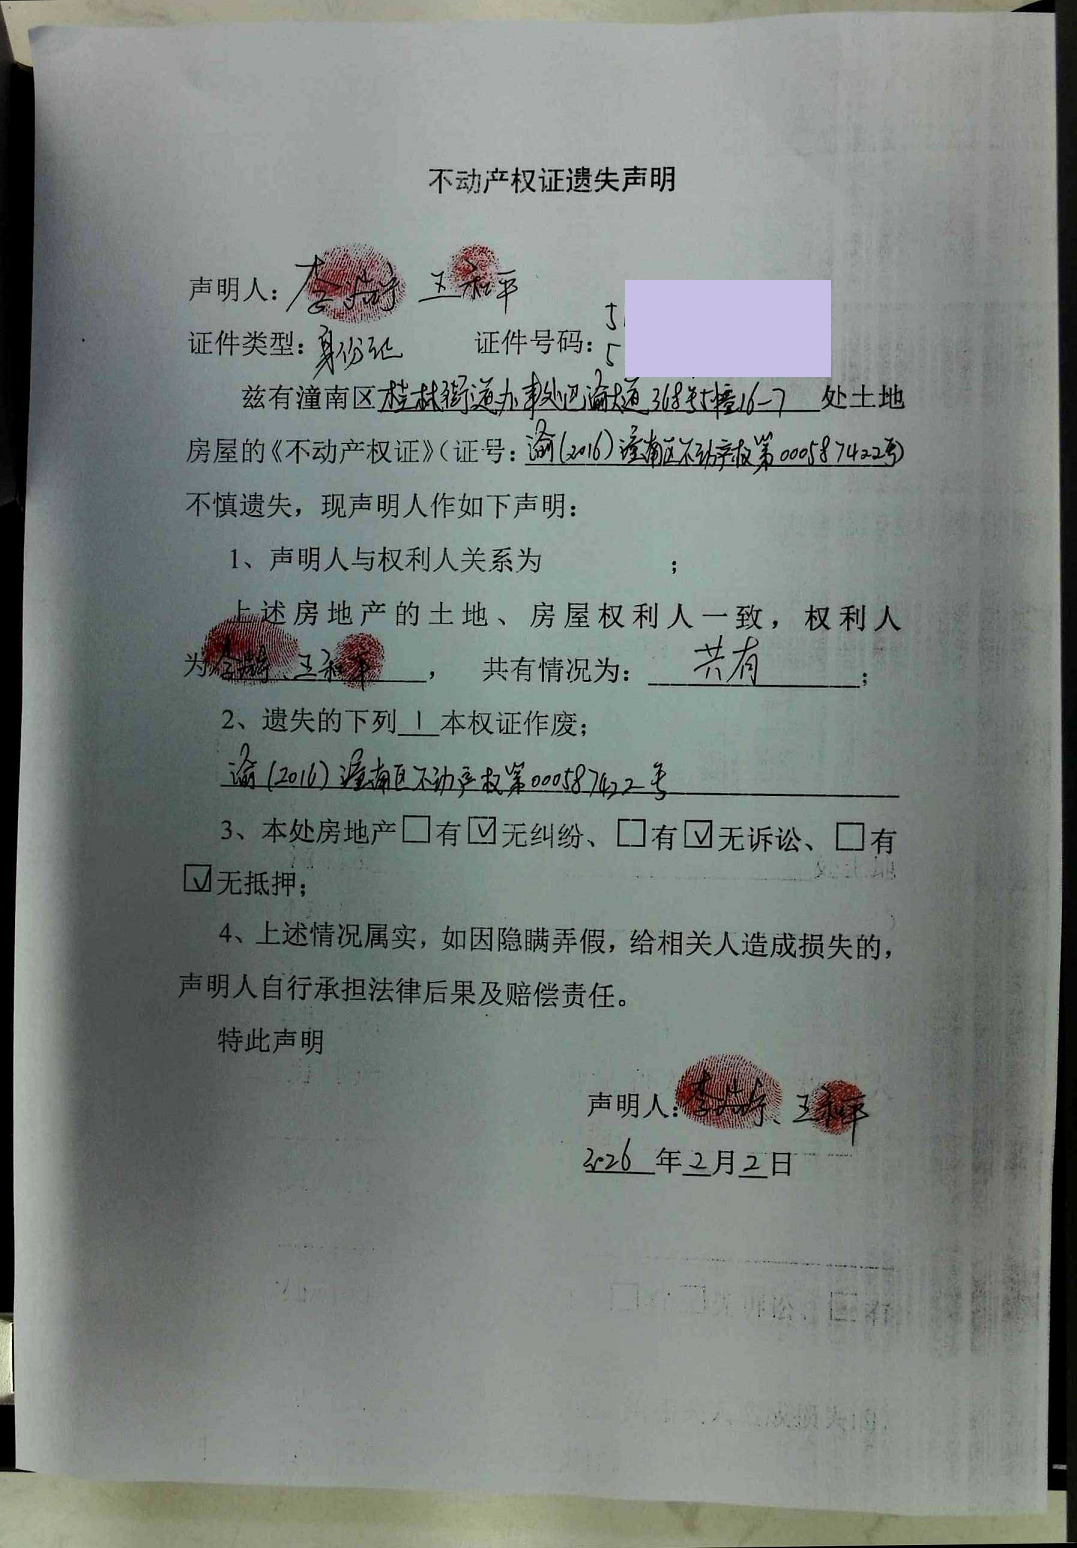 不动产权证遗失声明
声明人：李浩宇 王和平
证件类型：身份证 证件号码：5
5
兹有潼南区桂林街道办事处巴渝大道368号5幢16-7处土地
房屋的《不动产权证》（证号：渝(2016)潼南区不动产权第000587422号）
不慎遗失，现声明人作如下声明：
1、声明人与权利人关系为 ；
上述房地产的土地、房屋权利人一致，权利人
为李浩宇、王和平， 共有情况为：共有；
2、遗失的下列1本权证作废；
渝(2016)潼南区不动产权第000587422号
3、本处房地产□有☑无纠纷、□有☑无诉讼、□有
☑无抵押；
4、上述情况属实，如因隐瞒弄假，给相关人造成损失的，
声明人自行承担法律后果及赔偿责任。
特此声明
声明人：李浩宇、王和平
2026年2月2日